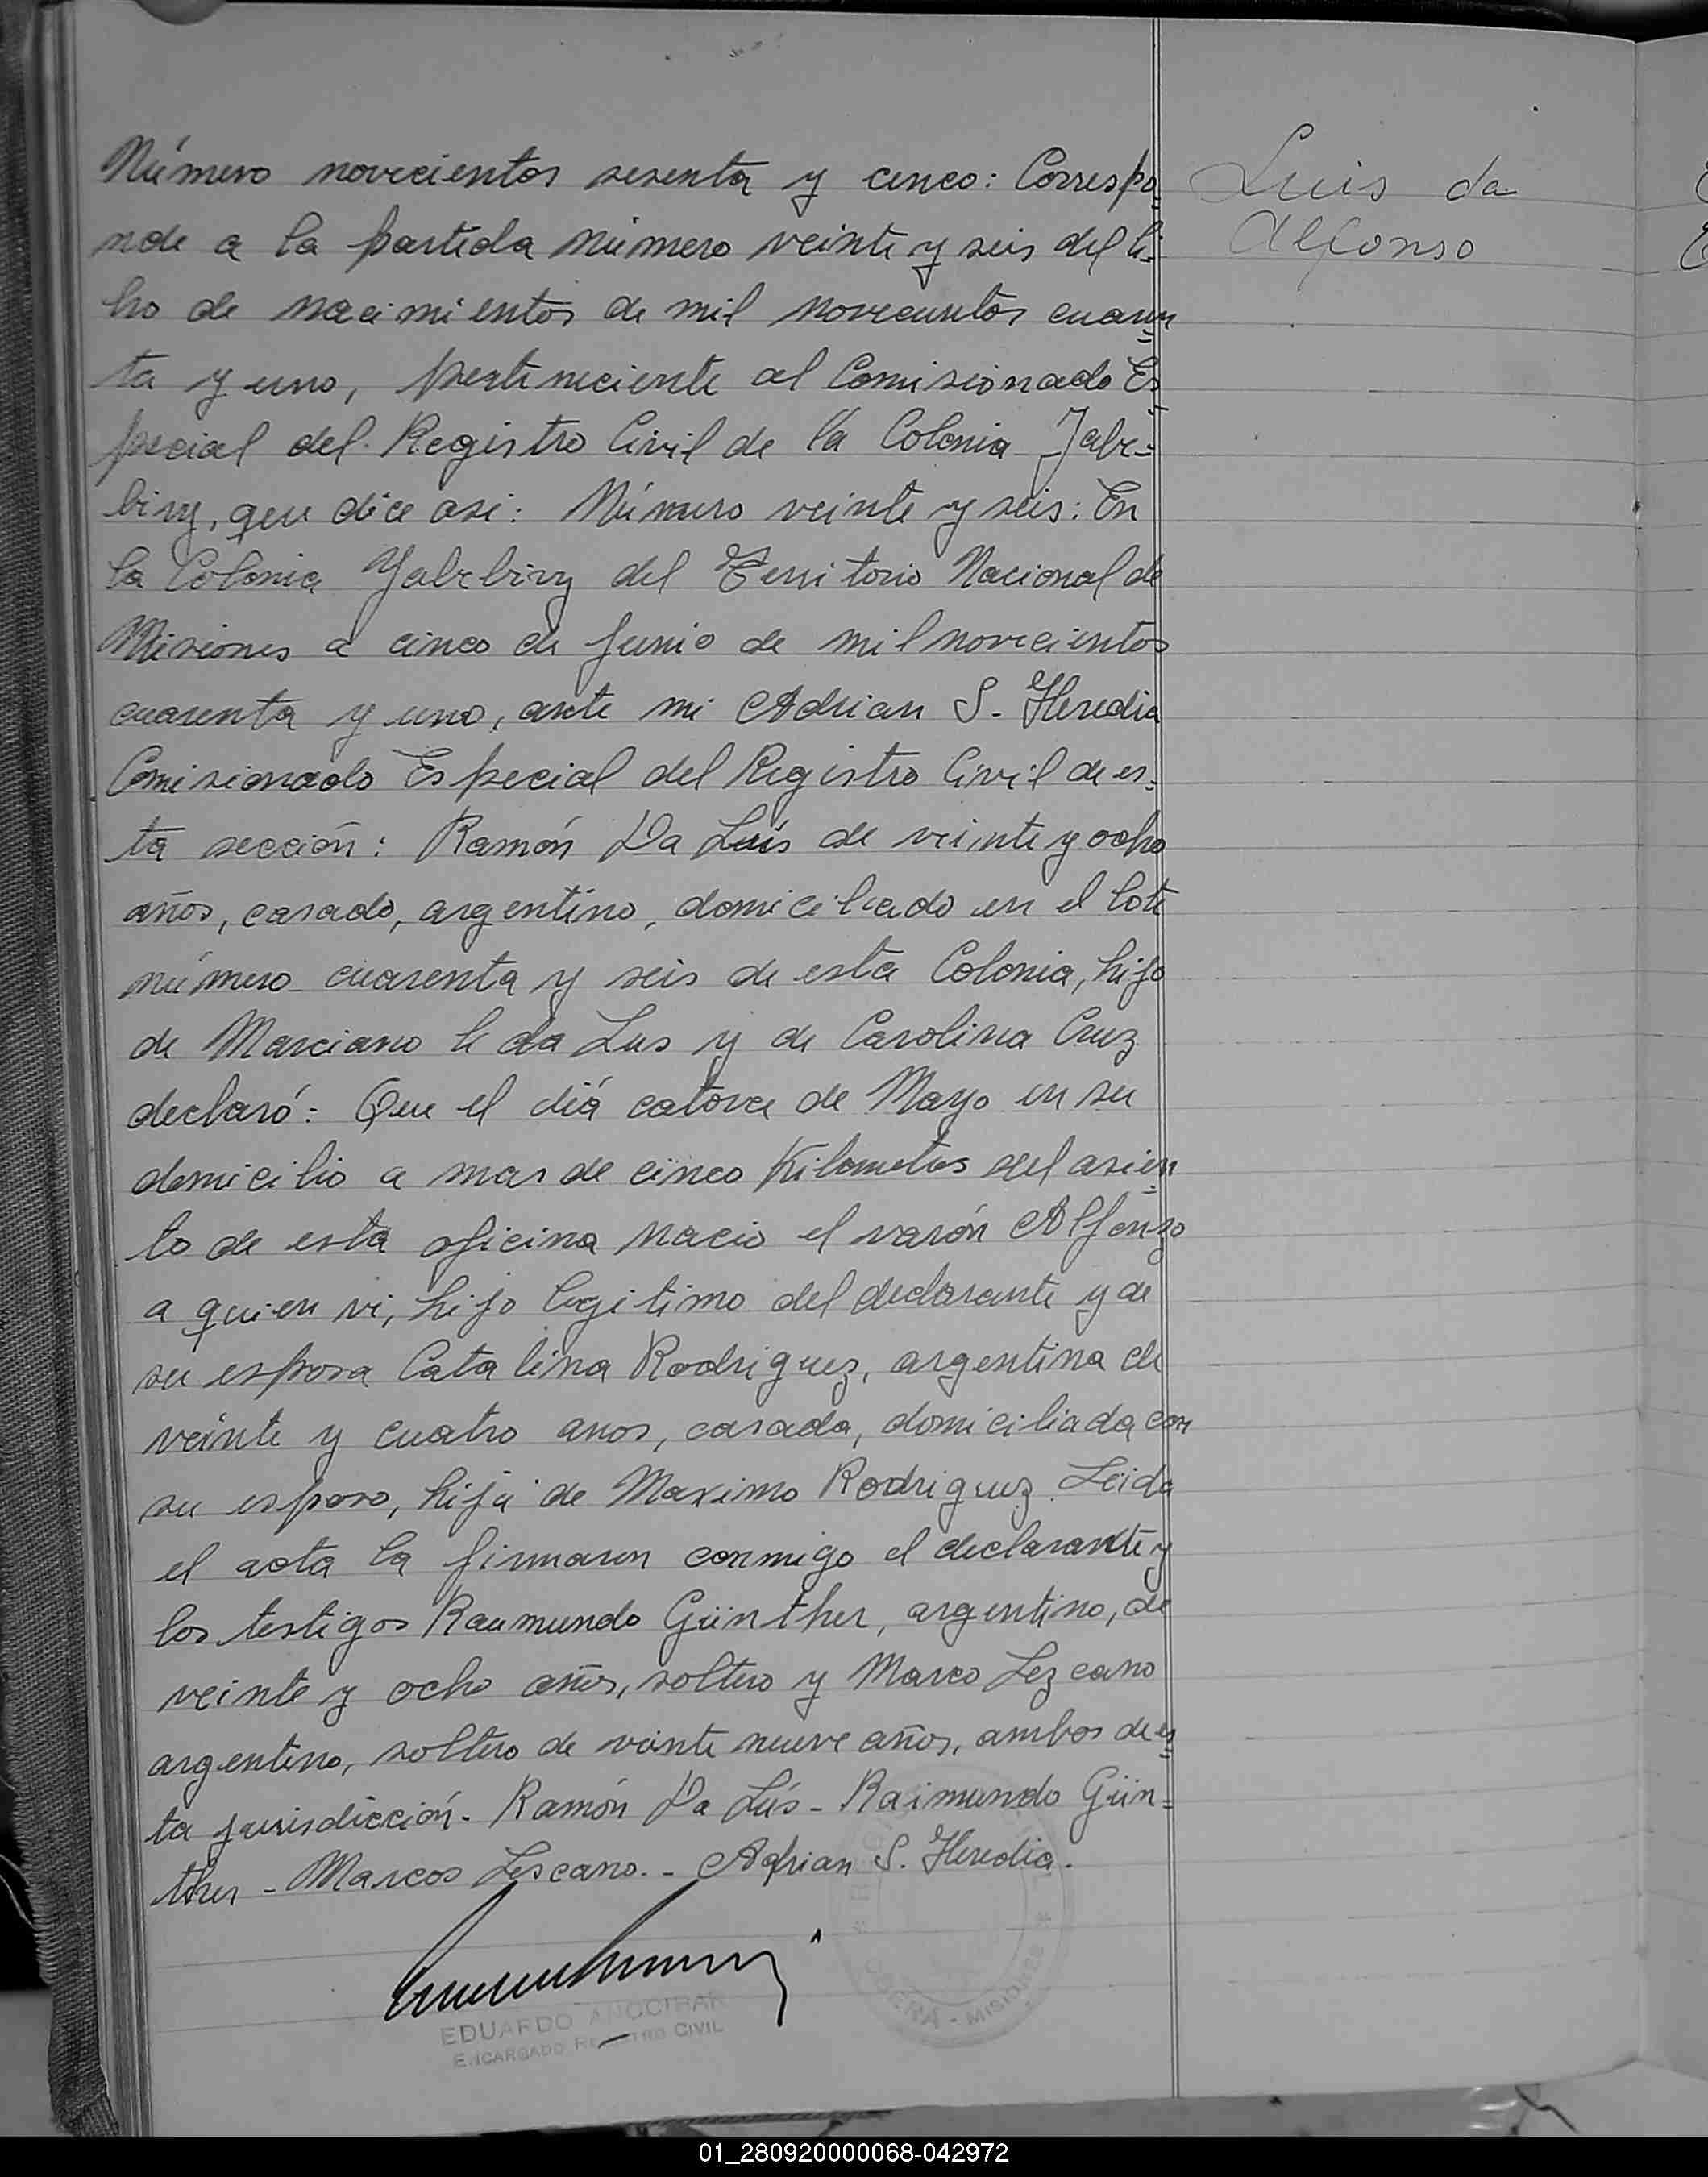 Número novecientos sesenta y cinco: Correspo
nde a la partida número veinte y seis del li-
bro de nacimientos de mil novecientos cuaren
ta y uno, perteneciente al Comisionado Es
pecial del Registro Civil de la Colonia Yabe-
biry, que dice asi: Número veinte y seis: En
la Colonia Yabebiry del Territorio Nacional de
Misiones a cinco de junio de mil novecientos
cuarenta y uno, ante mi Adrian S. Heredia
Comisionado Especial del Registro Civil de es-
ta sección: Ramón Da Luis de veinte y ocho
años, casado, argentino, domiciliado en el lote
número cuarenta y seis de esta Colonia, hijo
de Marciano L da Lus y de Carolina Cruz
declaró: Que el día catorce de Mayo en su
domicilio a mas de cinco Kilometros del asien
to de esta oficina nacio el varón Alfonso
a quien vi, hijo legitimo del declarante y de
su esposa Catalina Rodriguez, argentina de
veinte y cuatro anos, casada, domiciliada con
su esposo, hija de Maximo Rodriguez. Leida
el acta la firmaron conmigo el declarante y
los testigos Raumundo Günther, argentino, de
veinte y ocho años, soltero y Marco Lezcano
argentino, soltero de veinte nueve años, ambos de es
ta jurisdicción. Ramón Da Lús - Raimundo Gün-
ther - Marcos Lescano. - Adrian S. Heredia.
Luis da
Alfonso
EDUARDO ANOCIBAR
ENCARGADO REGISTRO CIVIL
MISIONES
01_280920000068-042972